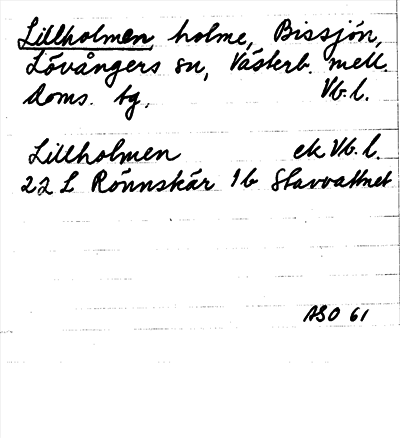 Lillholmen holme, Bissjön,
Lövångers sn, Västerb. mell.
doms. tg, Vb. l.
Lillholmen ek Vb. l.
22 L Rönnskär 1b Stavvattnet
ASO 61